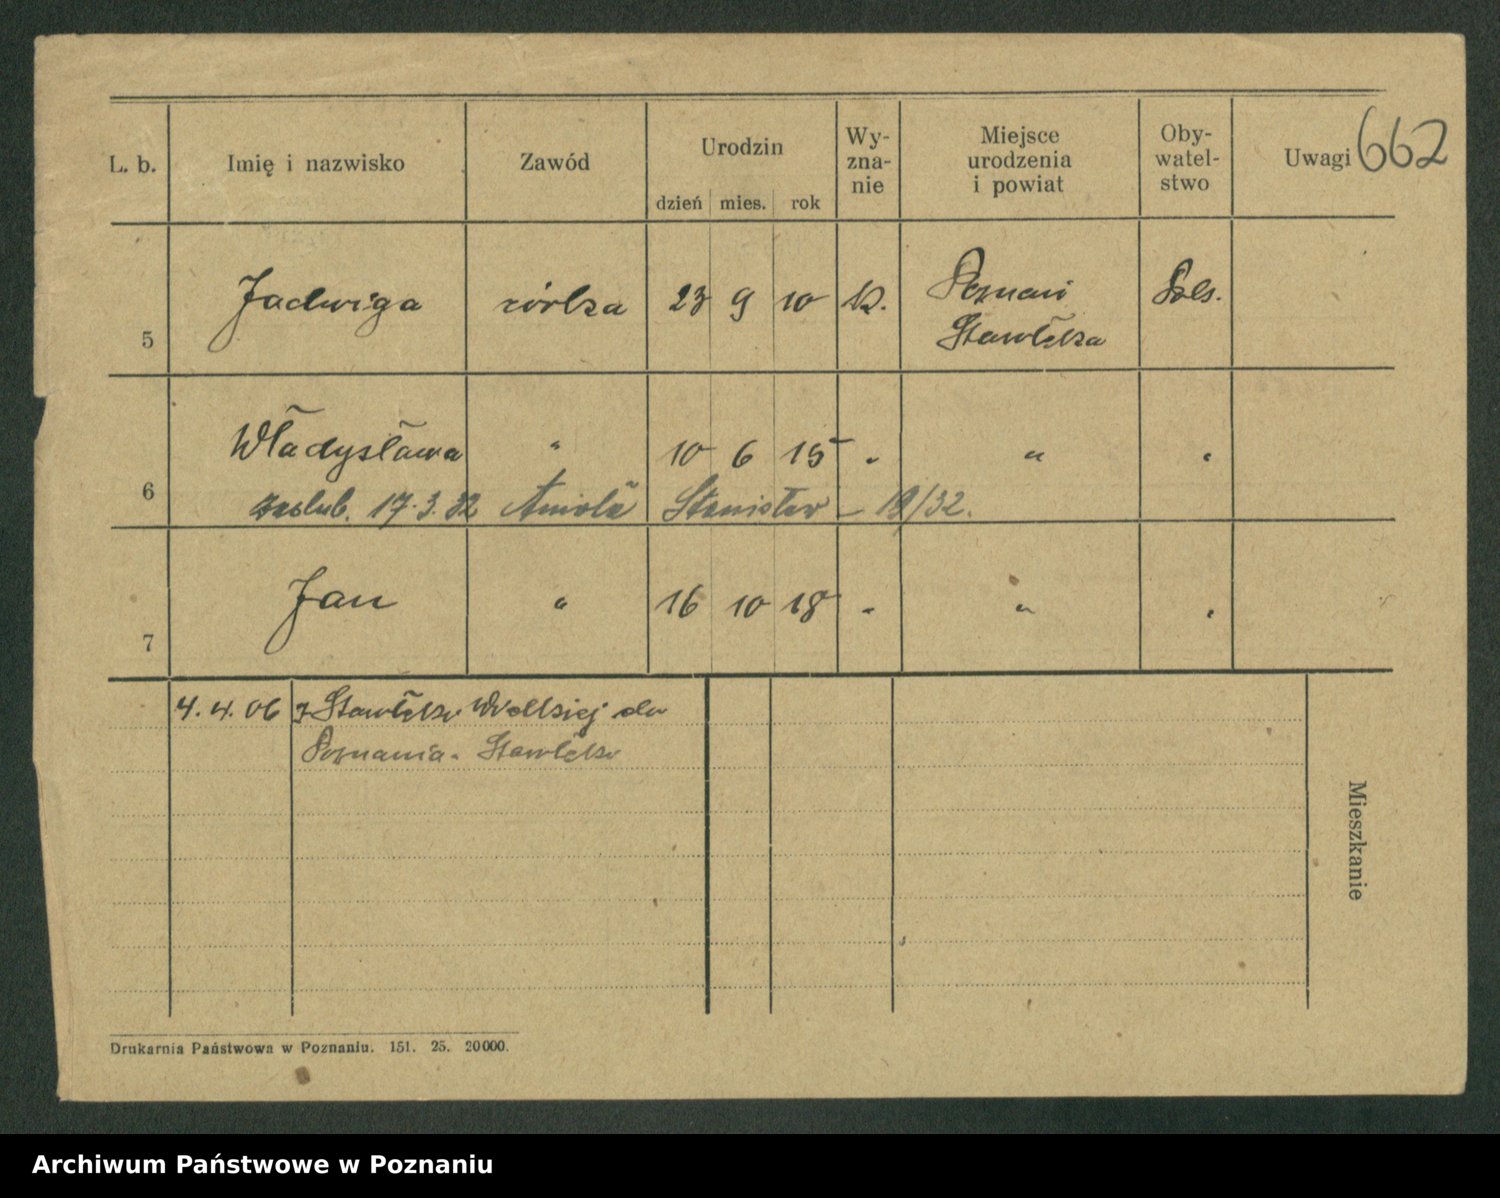 662
L. b. Imię i nazwisko Zawód Urodzin dzień mies. rok Wy-zna-nie Miejsce urodzenia i powiat Oby-watel-stwo Uwagi
5 Jadwiga córka 23 9 10 k. Poznań Pols.
Stawłęka
6 Władysława " 10 6 15 " " "
zaślub. 17.3.32 Anioła Stanisław /32.
7 Jan " 16 10 18 " " "
4.4.06 z do
Poznania.
Mieszkanie
Drukarnia Państwowa w Poznaniu. 151. 25. 20000.
Archiwum Państwowe w Poznaniu